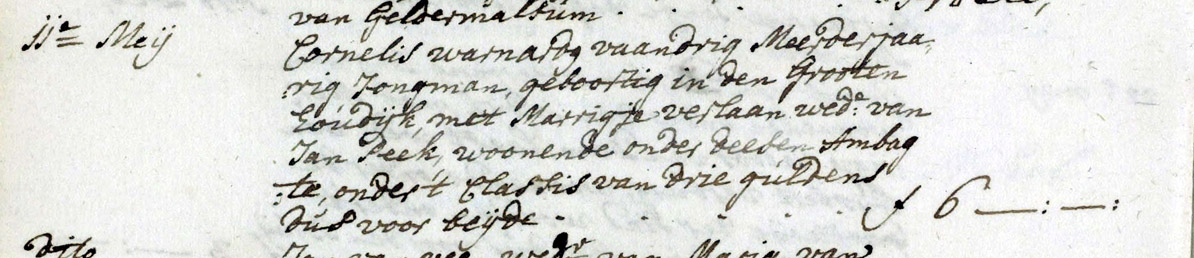 van Geldermalsum
11e Meij Cornelis warnardg vaandrig Meerderjaa,
:rig Jongman, geboortig in den Grooten
Houdijk, met Marrigje verlaan wede: van
Jan Peek, woonende onder deesen Ambag
:te, onder 't Classis van drie guldens
dus voor beijde . . . . . f 6 —:—:
Dito van Maria van